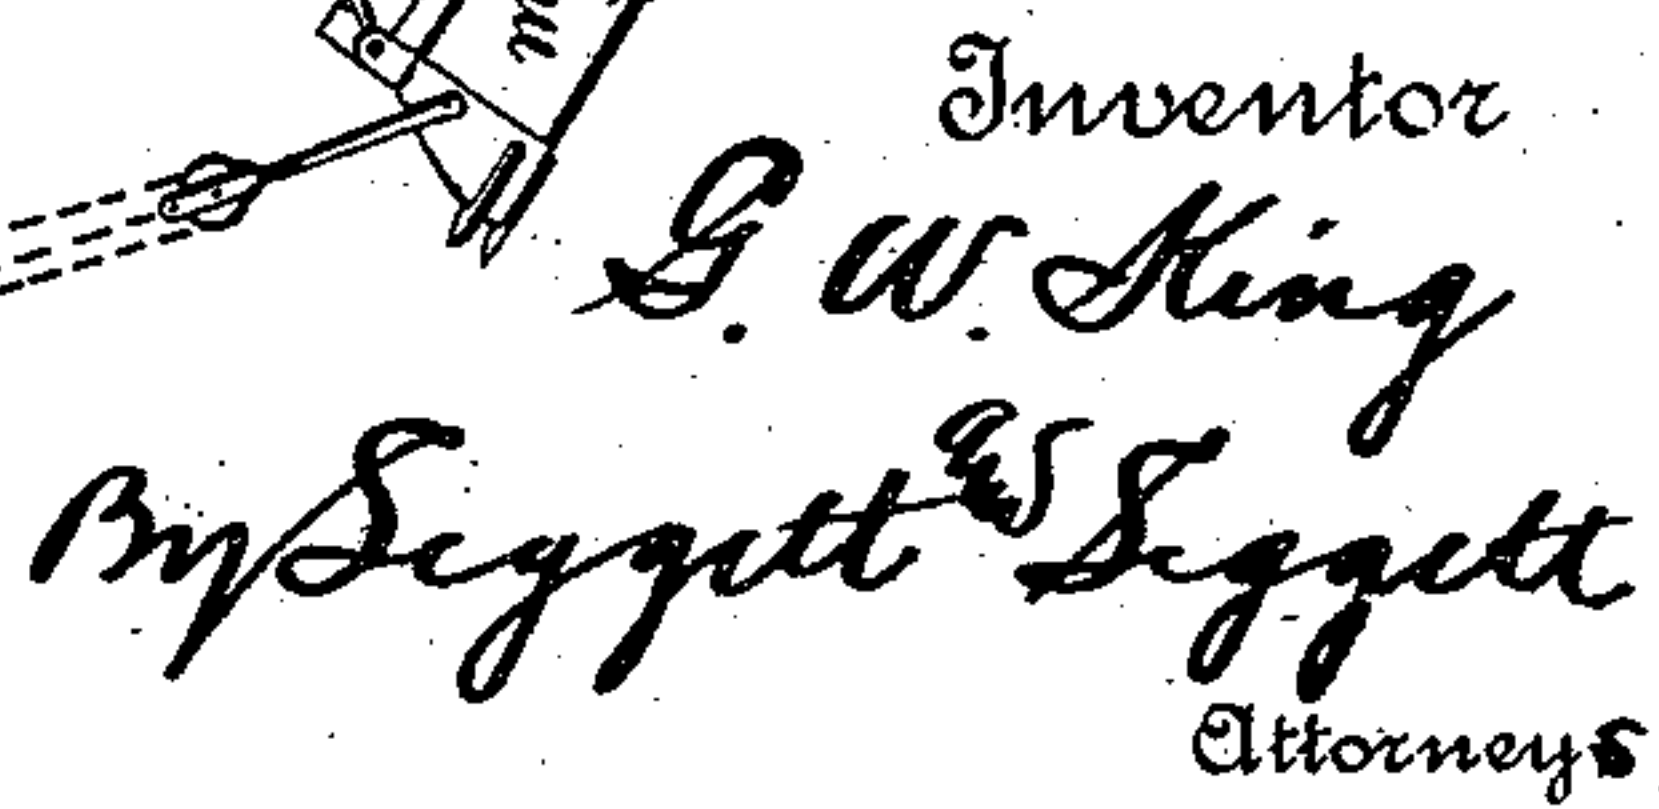 Inventor
G. W. King
By Leggett and Leggett
Attorneys